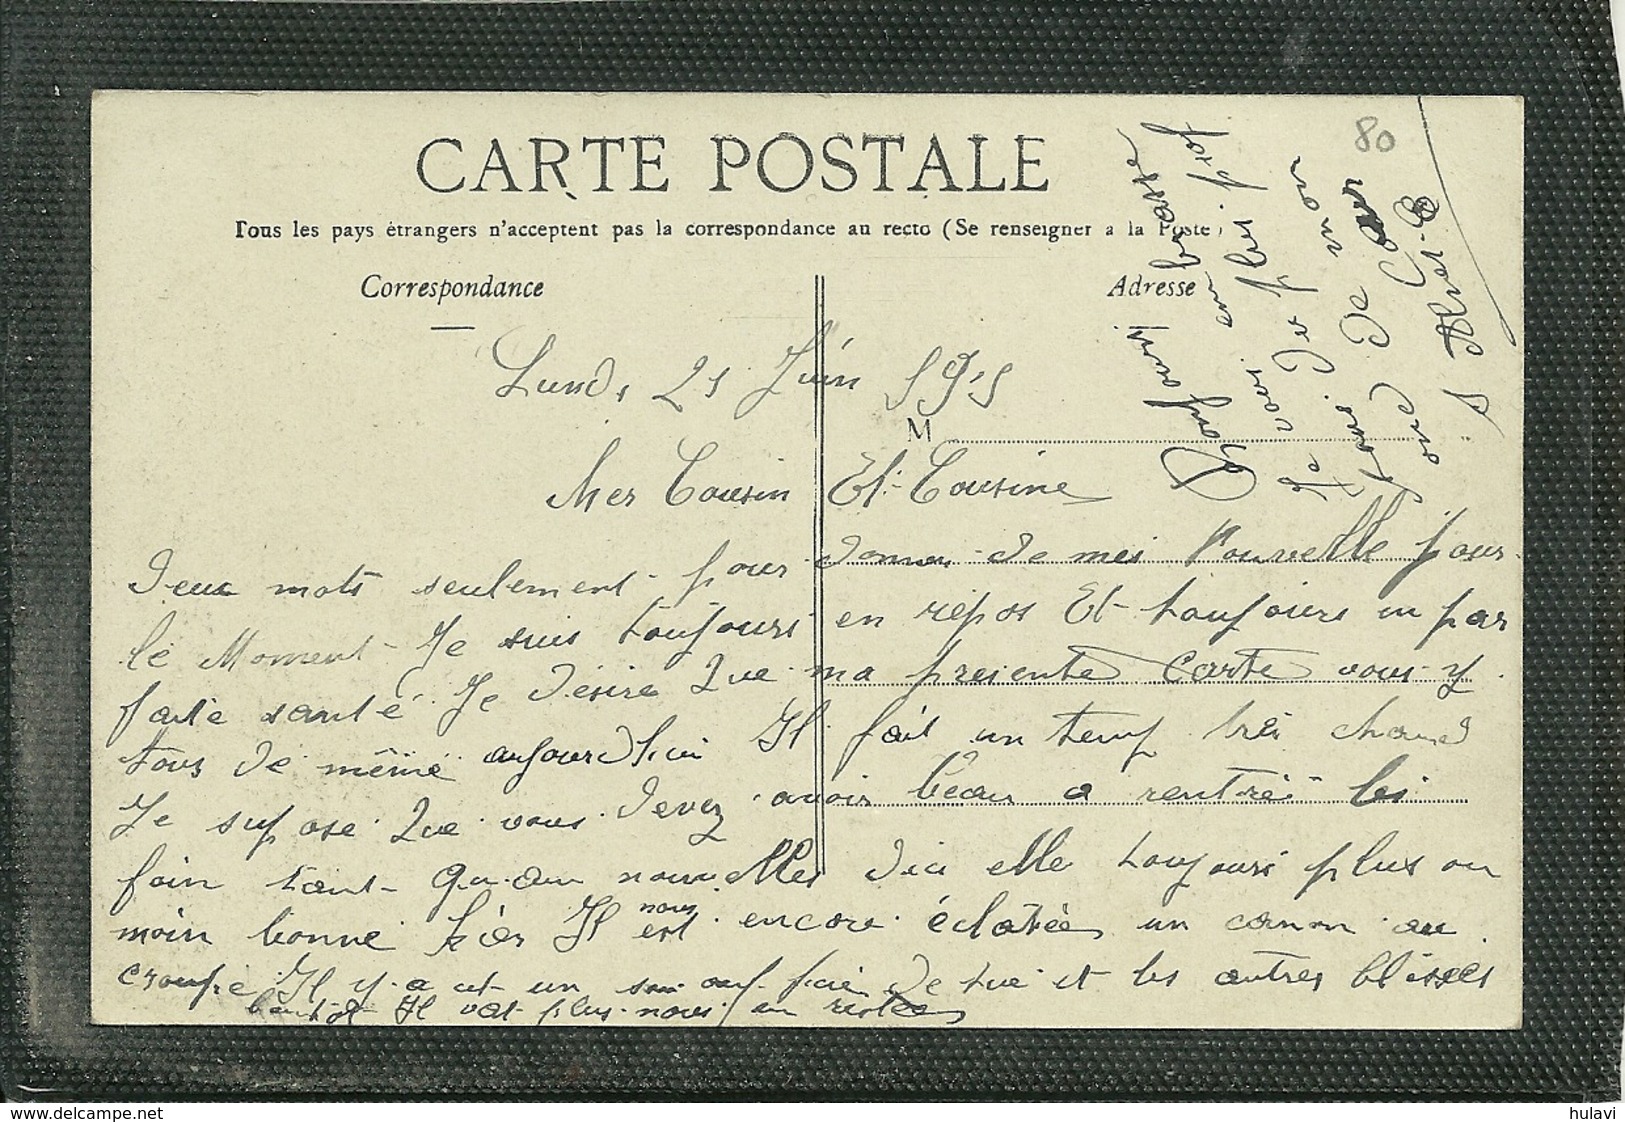 80
CARTE POSTALE
Tous les pays étrangers n'acceptent pas la correspondance au recto (Se renseigner a la Poste)
Correspondance
Adresse
Lundi 21 Juin 1915
M
Mes Cousin Et Cousine
Deux mots seulement pour donner de mes nouvelle pour
le Moment Je suis toujours en repos Et toujours en par
faite santé Je désire que ma presente Carte vous y
touv de même aujourdhui Il fait un temp très chaud
Je supose que vous devez avoir beau a rentré les
foin tant qu au nouvelles dici elle toujours plus ou
moin bonne hier Il nous est encore éclatée un canon au
croupie Il y a eut un sous off. de tué et les autres blessés
bientot Il vat plus nous en restée
vous en embrasse
Je ne vois plus
pour mon
A Mes
www.delcampe.net
hulavi